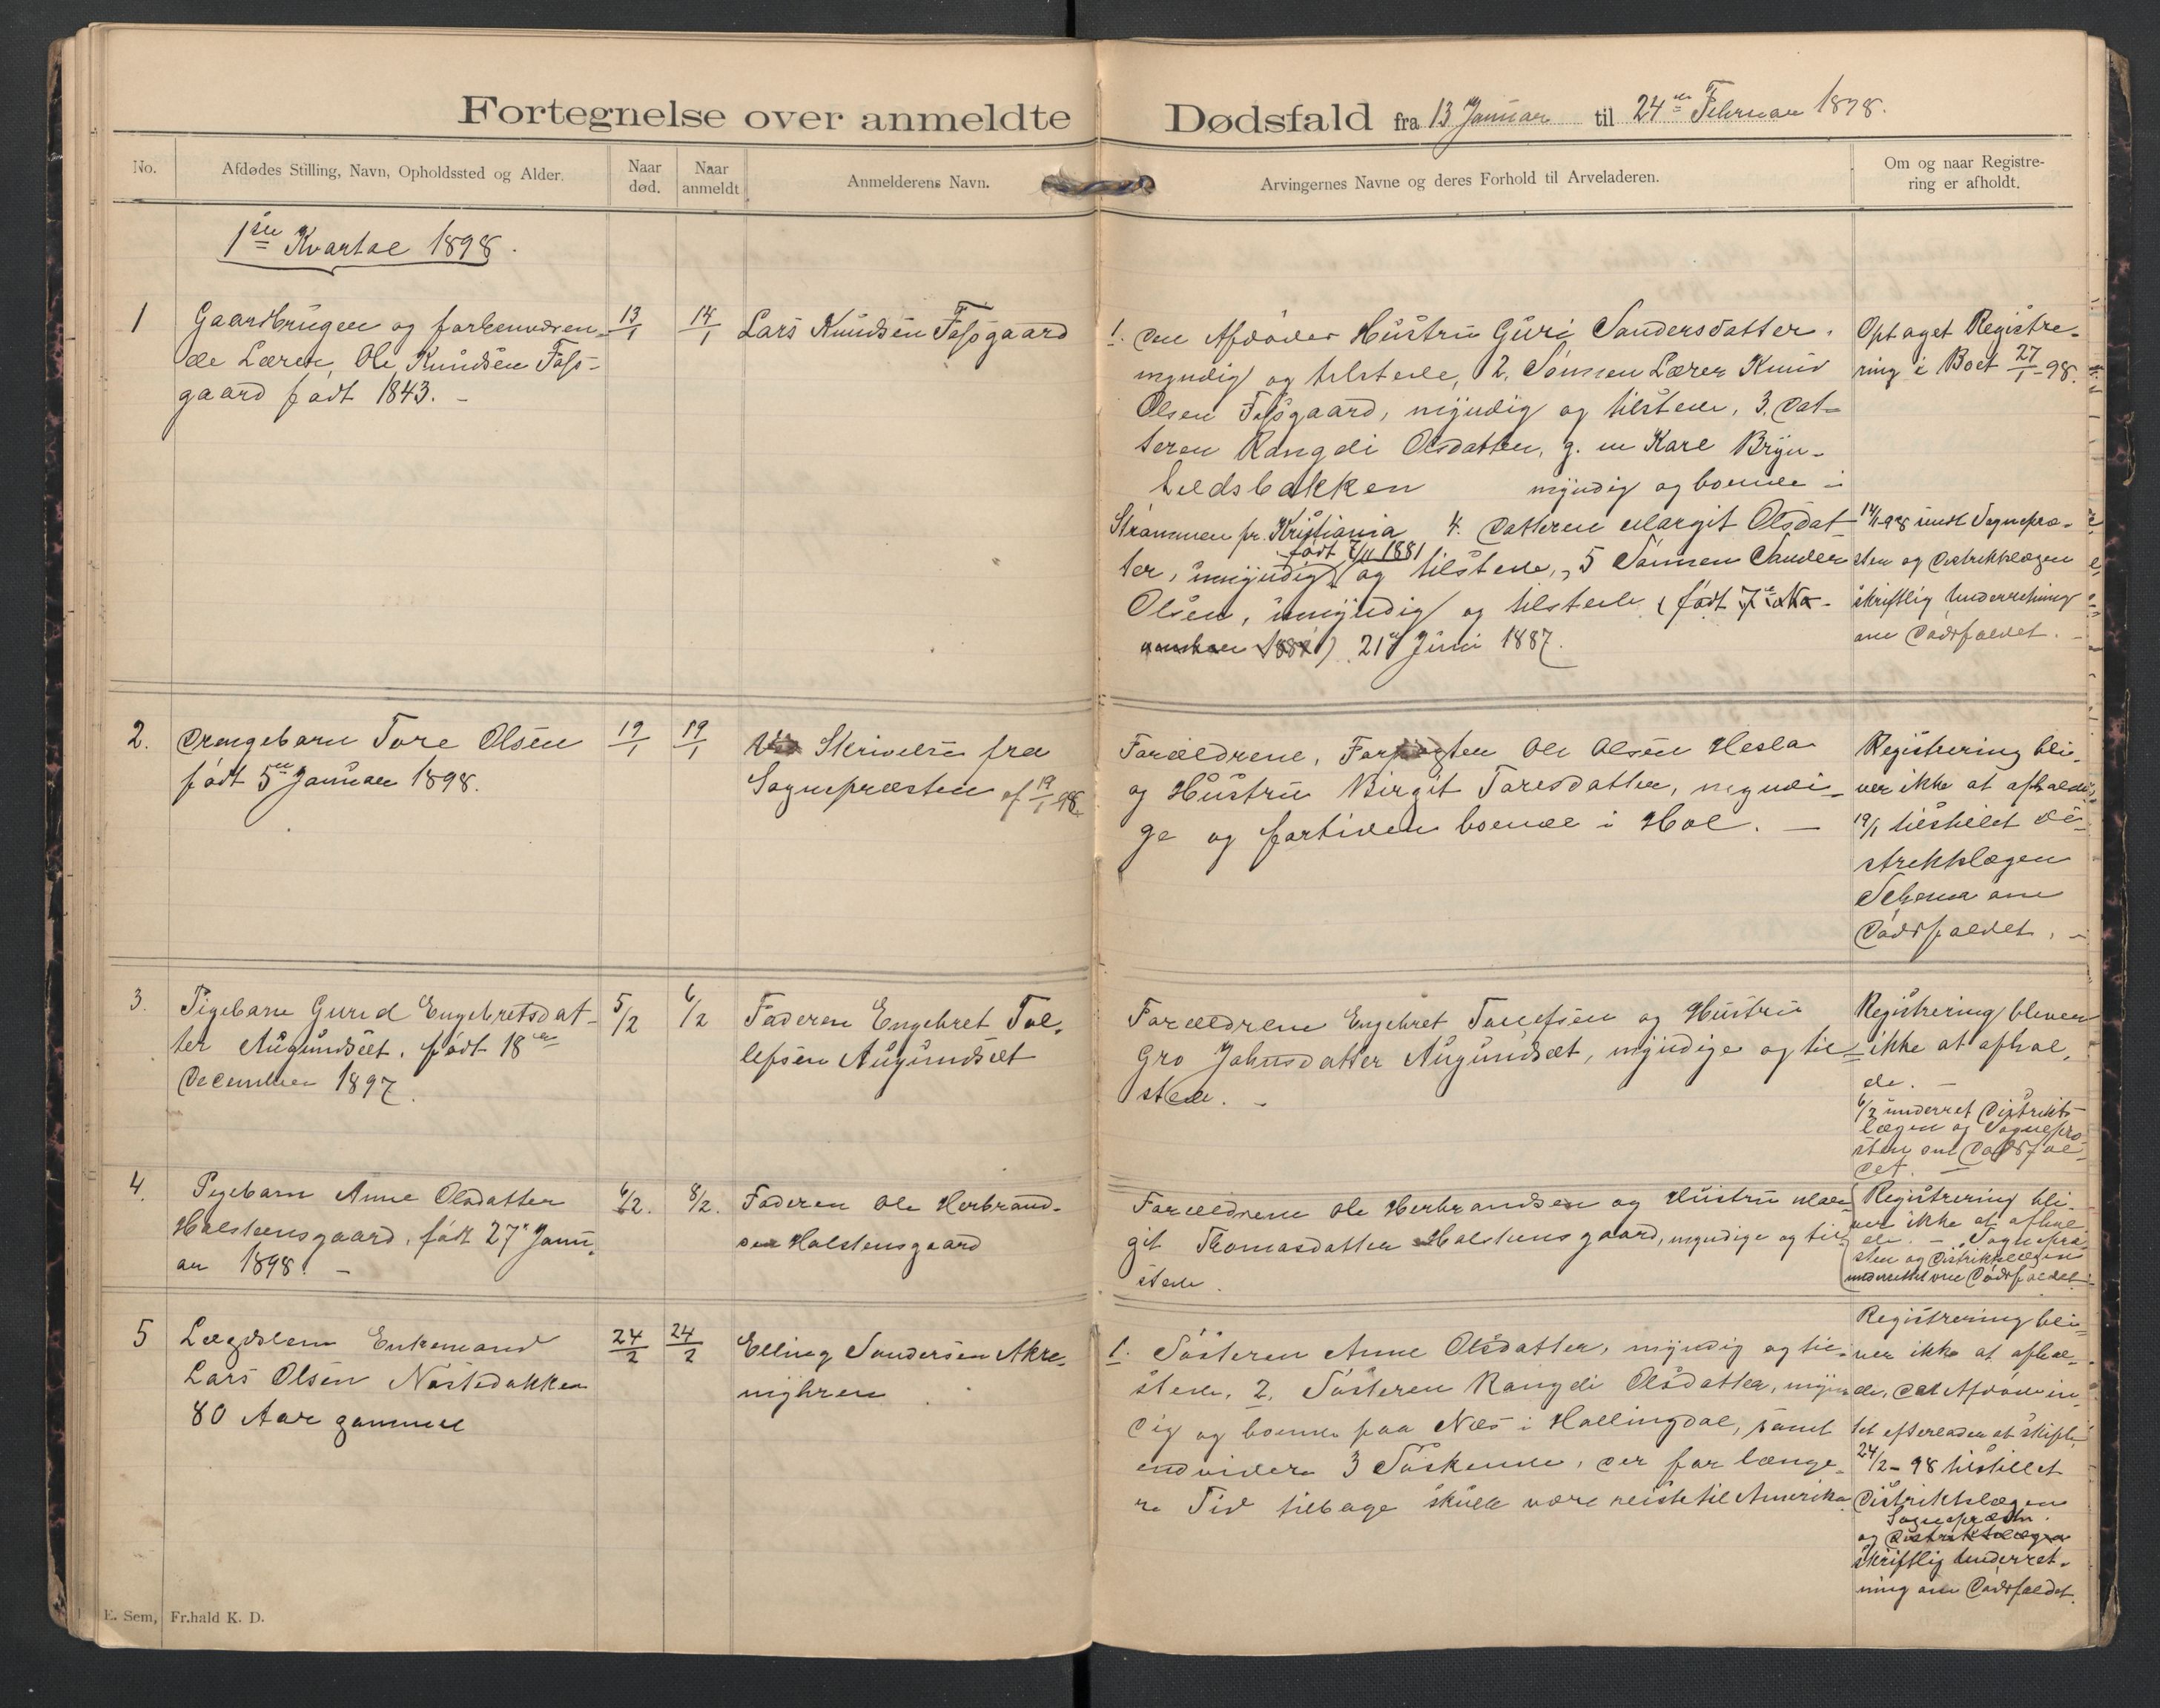 Fortegnelse over anmeldte Dødsfald fra 13 Januar til 24de Februar 1898.
No.
Afdødes Stilling, Navn, Opholdssted og Alder.
Naar død.
Naar anmeldt
Anmelderens Navn.
Arvingernes Navne og deres Forhold til Arveladeren.
Om og naar Registre-
ring er afholdt.
1ste Kvartal 1898.
1
Gaardbruger og forhenværen-
de Lærer, Ole Knudsen Foss-
gaard født 1843. -
13/1
14/1
Lars Knudsen Fossgaard
1. Den Afdødes Hustru Guri Sandersdatter,
myndig og tilstede, 2. Sønnen Lærer Knud
Olsen Fossgaard, myndig og tilstede, 3. Dat-
teren Rangdi Olsdatter, g. m Kare Bryn-
hildsbakken myndig og boende i
Strømmen pr. Kristiania 4. Datteren Margit Olsdat-
født 7/11 1881
ter, umyndig og tilstede, 5 Sønnen Sander
Olsen, umyndig og tilstede (født 7de
1881) 21de Juni 1887.
Optaget Registre-
ring i Boet 27/1-98.
14/1-98 sendt Sognepræ-
sten og Distriktslægen
skriftlig Underretning
om Dødsfaldet. -
2.
Drengebarn Tore Olsen
født 5te Januar 1898.
19/1
19/1
Ved Skrivelse fra
Sognepræsten af 19/1 98
Forældrene, Forpagter Ole Olsen Hesla
og Hustru Birgit Toresdatter, myndi-
ge og fortiden boende i Hol. -
Registrering bli-
ver ikke at afholde
19/1 tilstillet Di-
striktslægen
Schema om
Dødsfaldet. -
3.
Pigebarn Gurid Engebretsdat-
ter Augundsæt, født 18de
December 1897.
5/2
6/2
Faderen Engebret Tol-
lefsen Augundsæt
Forældrene Engebret Tollefsen og Hustru
Gro Johnsdatter Augundsæt, myndige og til-
stede. -
Registrering bliver
ikke at afhol-
de. -
6/2 underret Distrikts-
lægen og Sognepræ-
sten om Dødsfal-
det. -
4.
Pigebarn Anne Olsdatter
Halstensgaard, født 27de Janu-
ar 1898. -
6/2.
8/2.
Faderen Ole Herbrand-
sen Halstensgaard
Forældrene Ole Herbrandsen og Hustru Mar-
git Thomasdatter Halstensgaard, myndige og til-
stede.
Registrering bli-
ver ikke at afhol-
de. - Sognepræ-
sten og Distriktslægen
underrettet om Dødsfaldet.
5
Lægdslem Enkemand
Lars Olsen Nostebakken
80 Aar gammel
24/2
24/2
Elling Sandersen Akre-
myhren
1. Søsteren Anne Olsdatter, myndig og til-
stede, 2. Søsteren Rangdi Olsdatter, myn-
dig og boende paa Næs i Hallingdal, samt
endvidere 3 Søskende, der for længe-
re Tid tilbage skulle være reiste til Amerika
Registrering bli-
ver ikke at afhol-
de, da Afdøde in-
tet efterlader at skifte
24/2-98 tilstillet
Distriktslægen
Sognepræsten.
og Distriktslægen
skriftlig Underret-
ning om Dødsfaldet.
E. Sem, Fr.hald K. D.